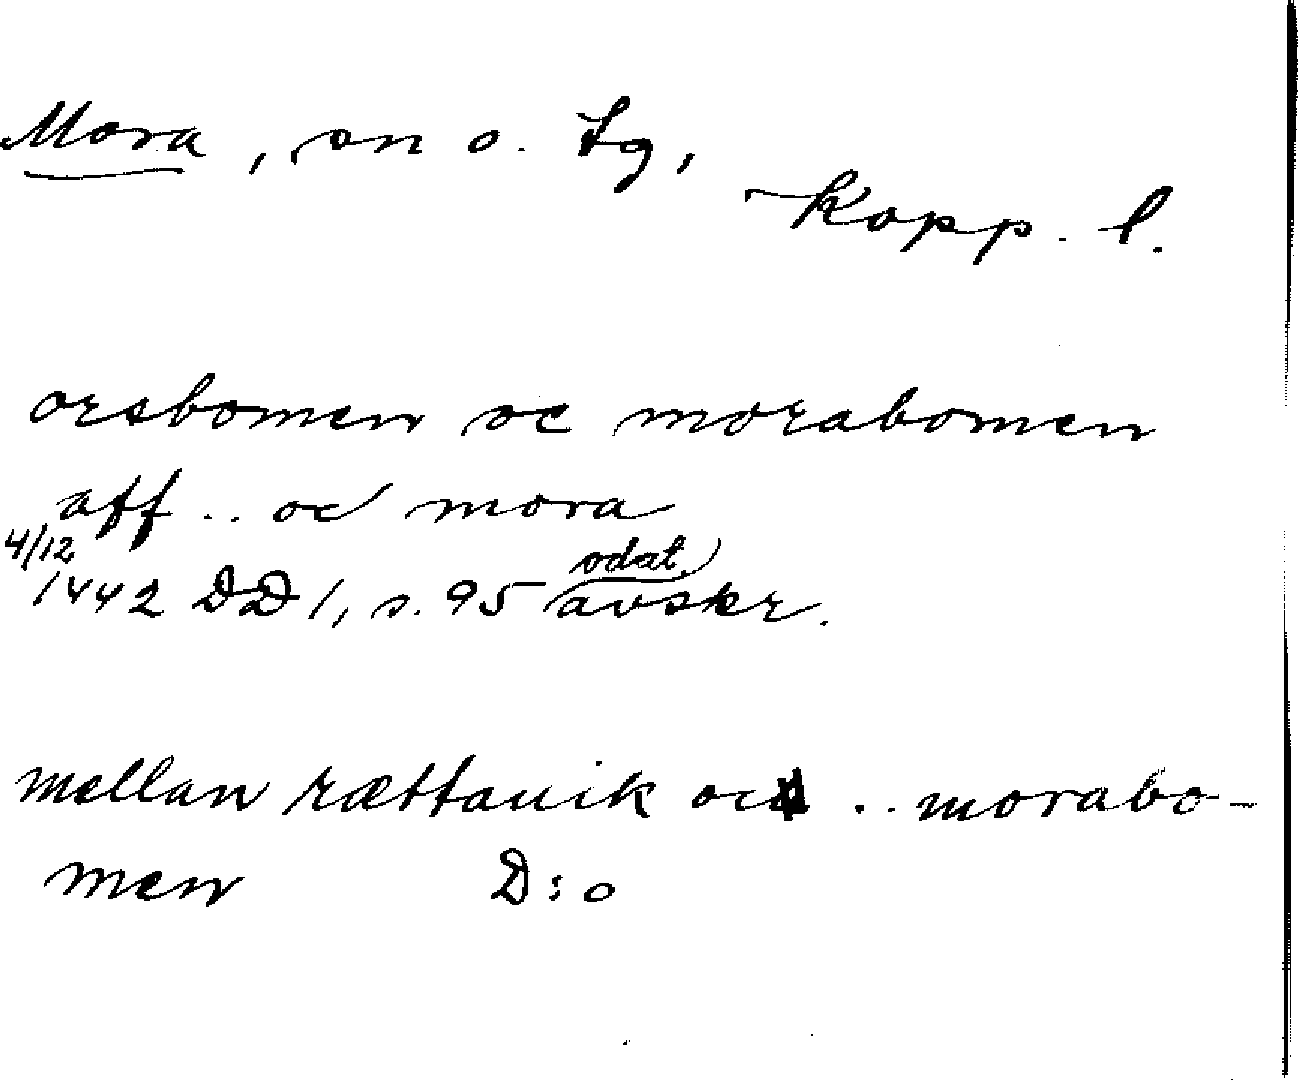 Mora, sn o. tg,
Kopp. l.
orsbomen oc morabomen
aff .. oc mora
4/12
odat.
1442 DD 1, s. 95 avskr.
mellan rættauik oc .. morabo-
men D:o